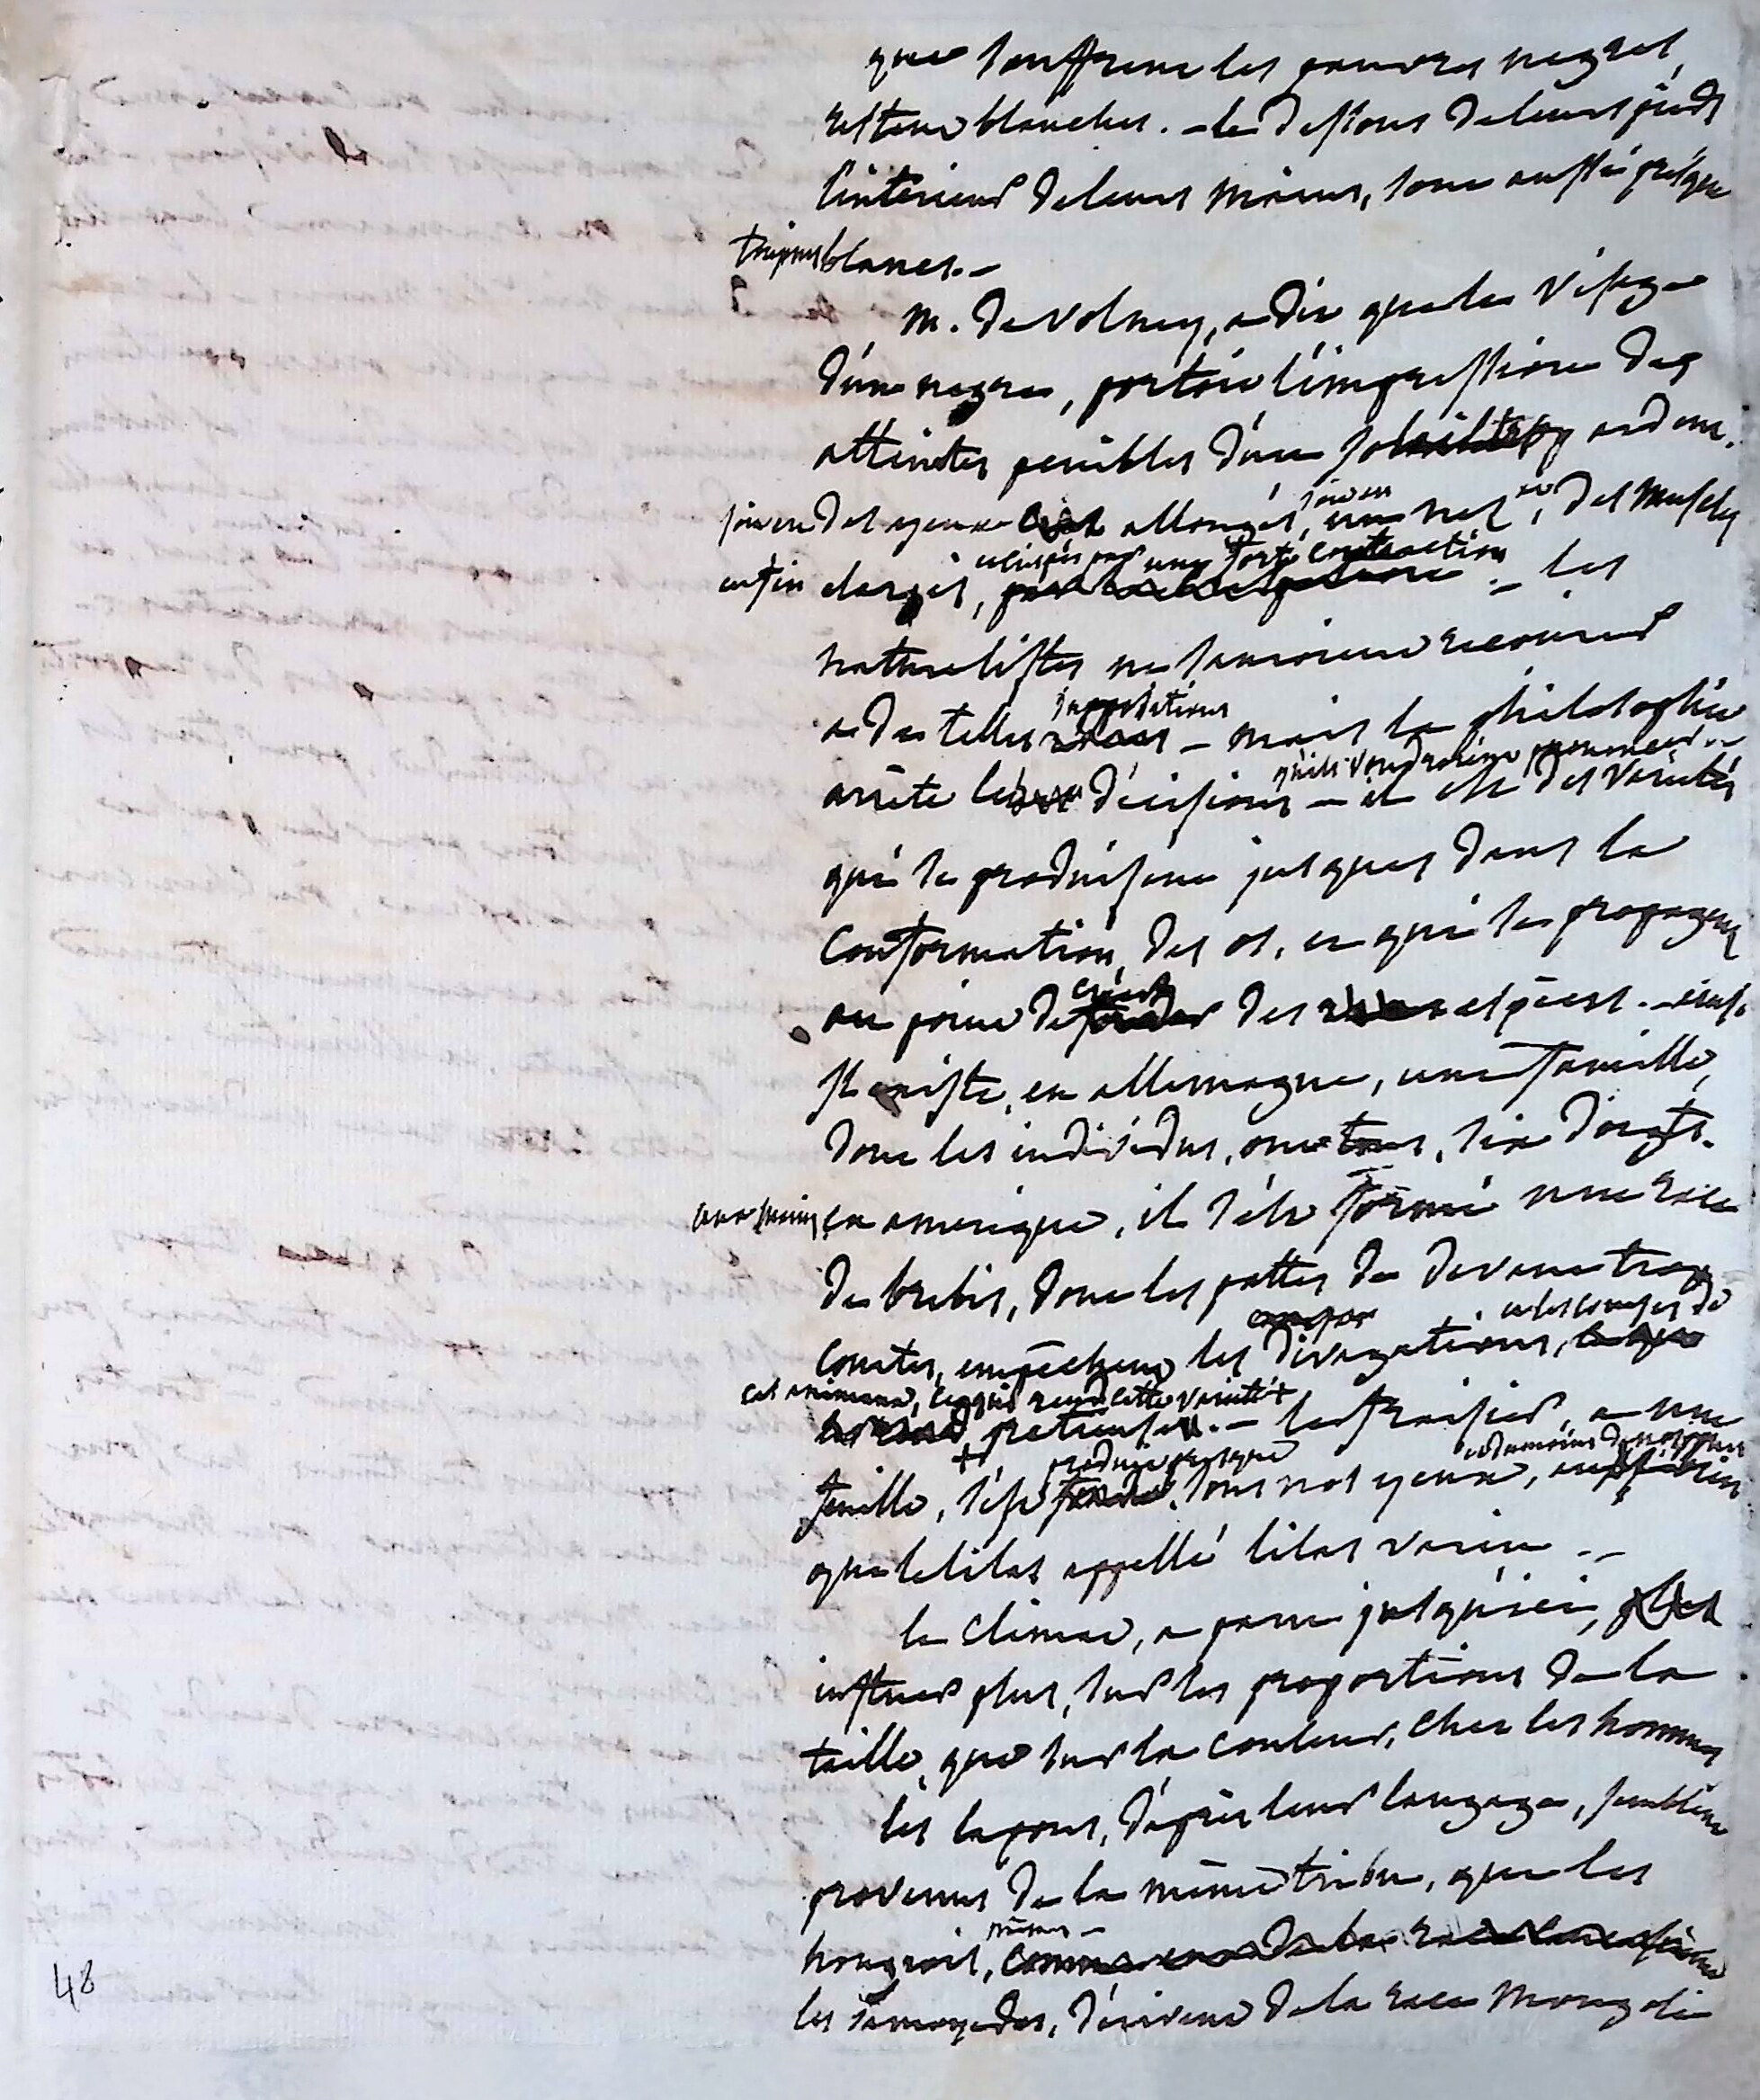 que souffrent les pauvres negres,
restent blanches. - le dessous de leurs pieds
l'interieur de leurs mains, sont aussi presque
toujours blancs. -
M. de Volney, a dit que le visage
d'un negre, portoit l'impression des
atteintes penibles d'un soleil trop ardent.
soivent des yeux allongés, un nez, des muscles
crispés par une forte contraction
enfin elargis, - les
naturalistes ne sauroient recourir
suppositions
a de telles - mais la philosophie
qu'ils voudroient prononcer. -
arrête les décisions - il est des variétés
qui se produisent jusques dans la
conformation des os, et qui se propagent
créer
au point de des especes. - ainsi
Il existe, en allemagne, une famille,
dont les individus, ont tous, six doigts.
aux mains en amerique, il s'est formé une race
de brebis, dont les pattes de devant trop
et les courses de
courtes, empêchent les divagations,
ces animaux, ce qui rend cette variété +
+ pretieuse. - le fraisier, a une
produit presque et du moins de nos jours
feuille, s'est sous nos yeux,
que le lilas appellé lilas varin -
le climat, a paru jusqu'ici,
influer plus, sur les proportions de la
taille, que sur la couleur, chez les hommes
les lapons, d'après leur langage, semblent
provenus de la même tribu, que les
mêmes -
hongrois,
les samoyedes, dérivent de la race Mongole
48